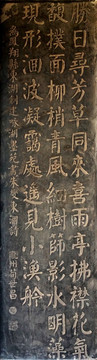 勝日尋芳草同來喜雨亭拂襟花氣
馥撲面柳梢青風細樹篩影水明藻
現形迴波凝靄處遙見小漁舲